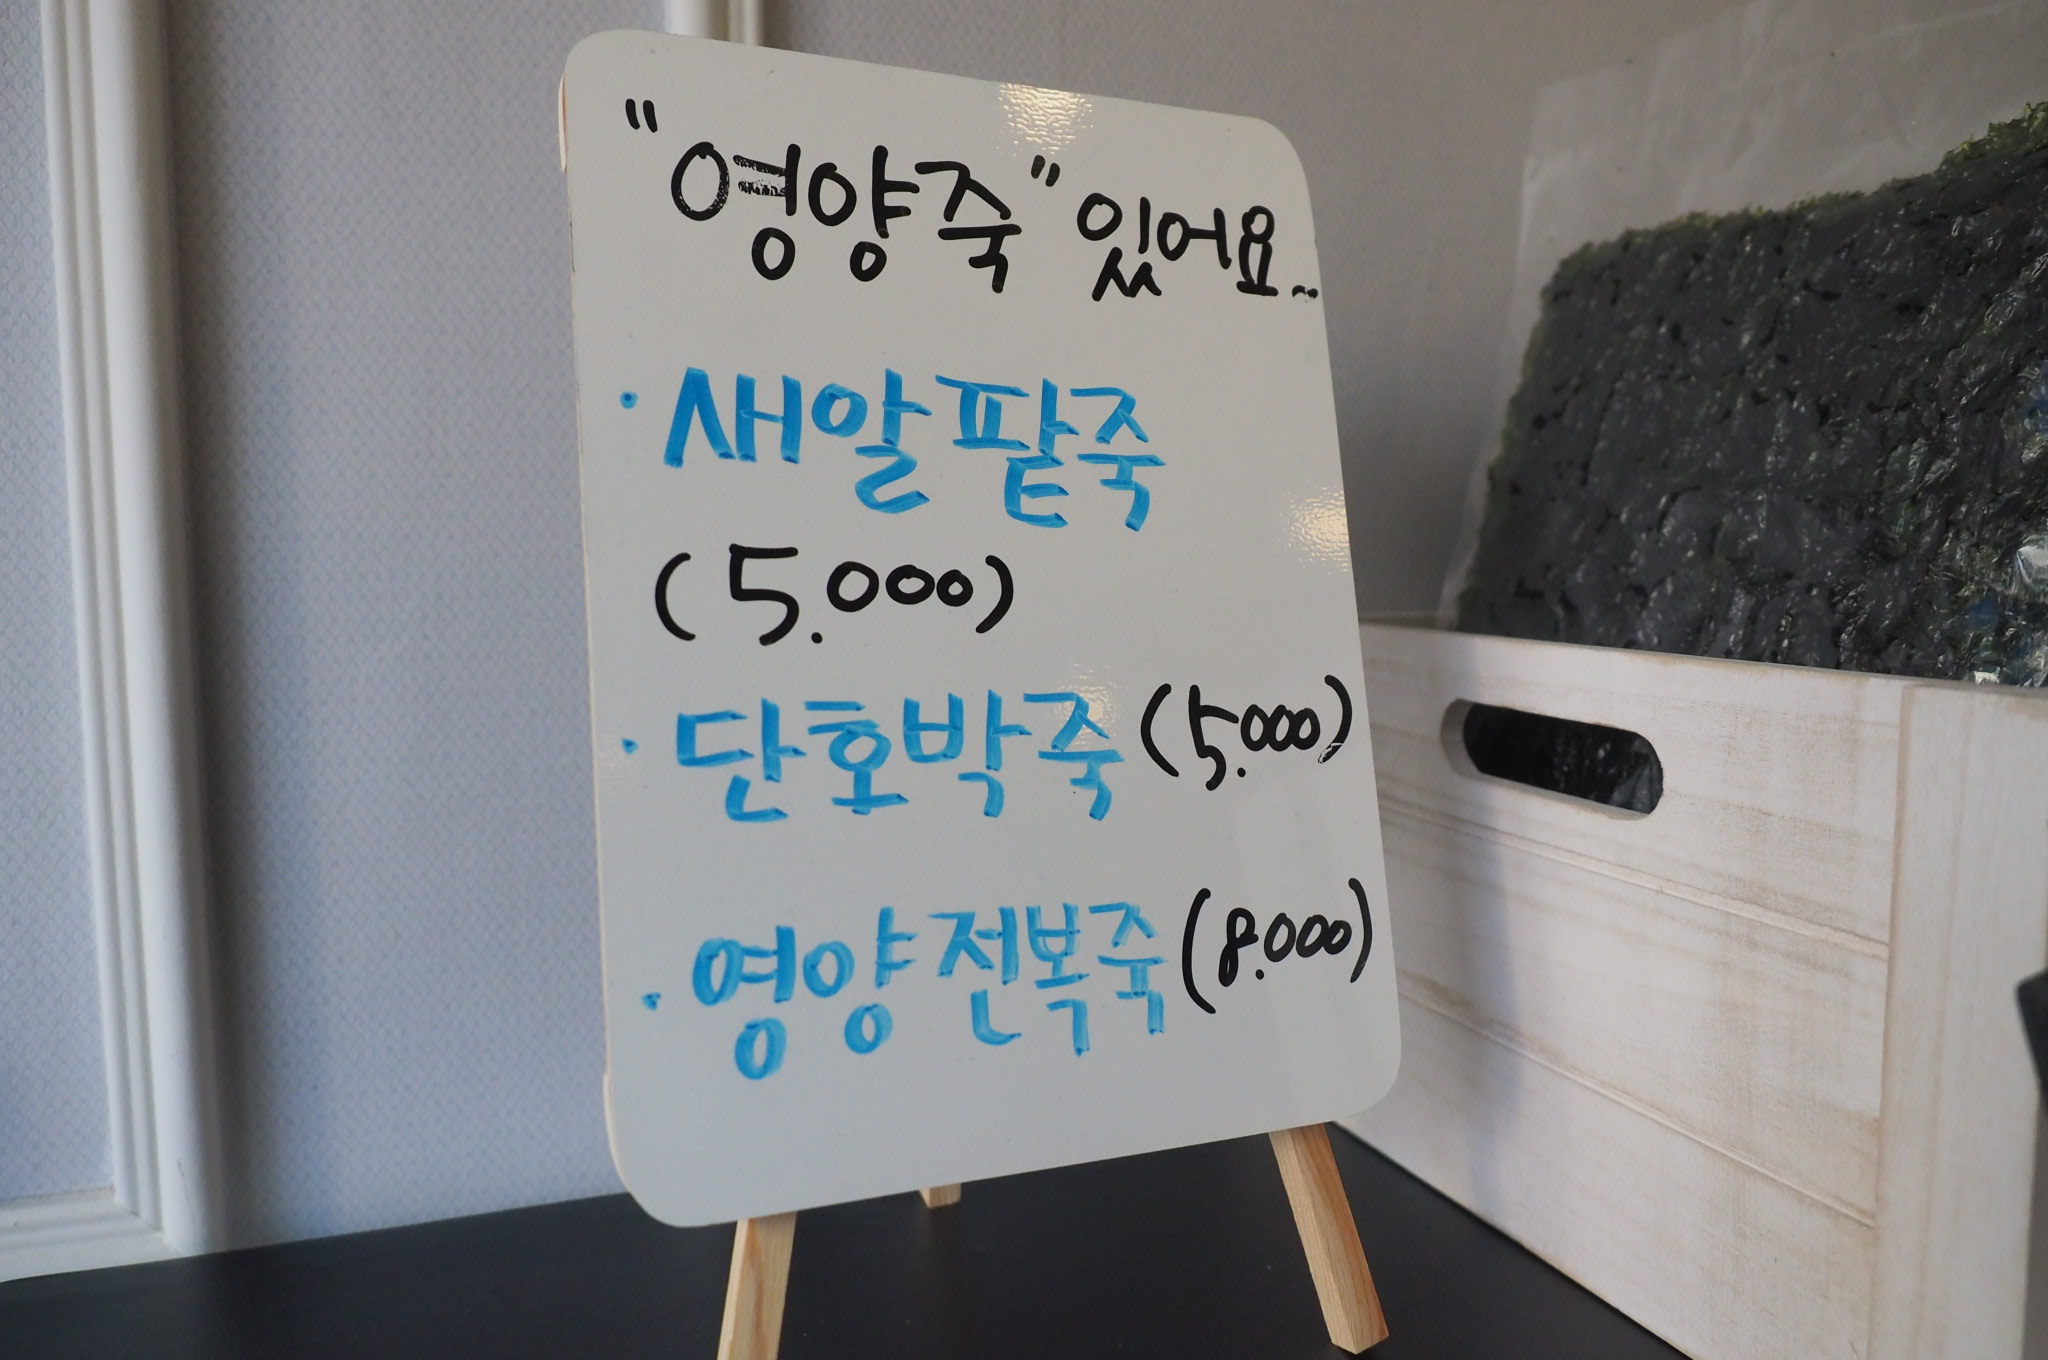 "영양죽" 있어요..
· 새알팥죽
(5.000)
· 단호박죽 (5.000)
· 영양전복죽 (8.000)